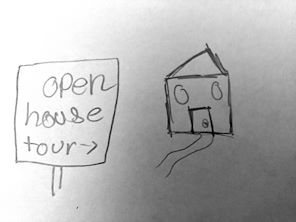 open
house
tour→